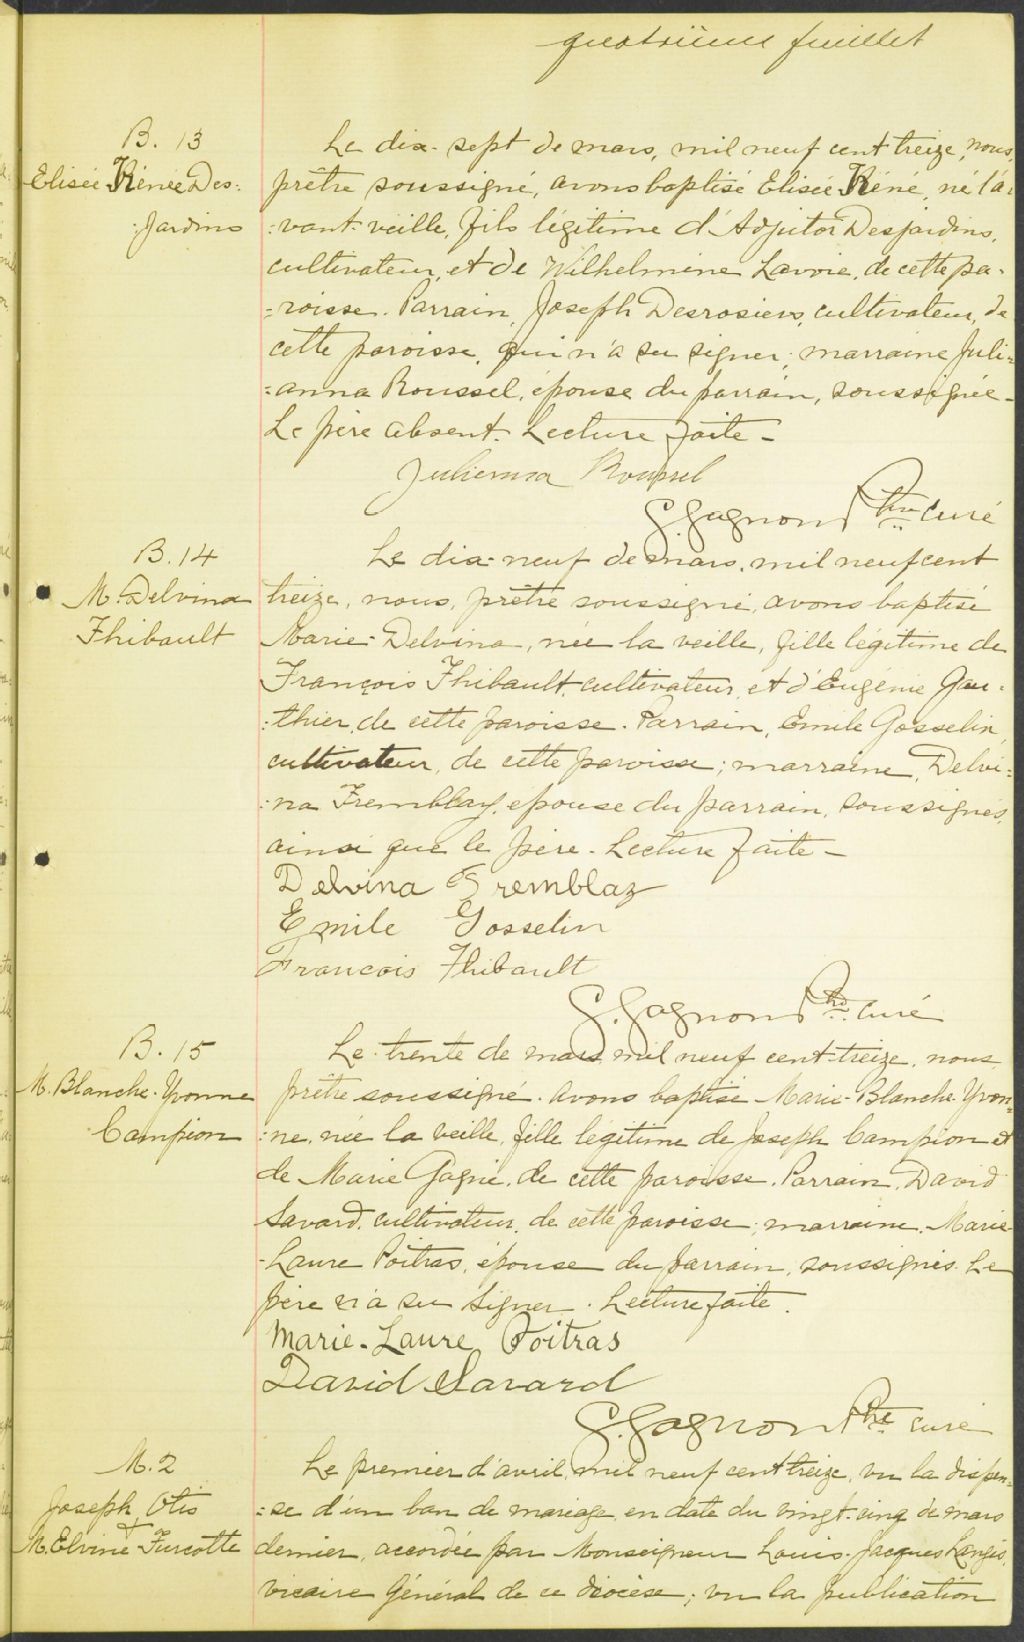 quatrième feuillet
B. 13
Elisée Réné Des-
-jardins
Le dix-sept de mars, mil neuf cent treize, nous,
prêtre soussigné, avons baptisé Elisée Réné, né l'a-
-vant-veille, fils légitime d'Adjutor Desjardins,
cultivateur, et de Wilhelmine Lavoie, de cette pa-
-roisse. Parrain, Joseph Desrosiers, cultivateur, de
cette paroisse, qui n'a su signer; marraine Juli-
-anna Roussel, épouse du parrain, soussignée -
Le père absent. Lecture faite -
Julienna Roussel
G. Gagnon Ptre curé
B. 14
M. Delvina
Thibault
Le dix-neuf de mars, mil neuf cent
treize, nous, prêtre soussigné, avons baptisé
Marie-Delvina, née la veille, fille légitime de
François Thibault, cultivateur, et d'Eugénie Gau-
-thier, de cette paroisse. Parrain, Emile Gosselin,
cultivateur, de cette paroisse; marraine, Delvi-
-na Tremblay, épouse du parrain, soussignés,
ainsi que le père. Lecture faite -
Delvina Tremblay
Emile Gosselin
François Thibault
G. Gagnon Ptre curé
B. 15
M. Blanche-Yvonne
Campion
Le trente de mars mil neuf cent treize, nous
prêtre soussigné, avons baptisé Marie-Blanche-Yvon-
-ne, née la veille, fille légitime de Joseph Campion et
de Marie Gagné, de cette paroisse. Parrain, David
Savard, cultivateur, de cette paroisse; marraine, Marie-
-Laure Poitras, épouse du parrain, soussignés. Le
père n'a su signer. Lecture faite.
Marie-Laure Poitras
David Savard
G. Gagnon Ptre curé
M. 2
Joseph Otis
+
M. Elvine Turcotte
Le premier d'avril, mil neuf cent treize, vu la dispen-
-se d'un ban de mariage, en date du vingt-cinq de mars
dernier, accordée par Monseigneur Louis-Jacques Langis,
vicaire Général de ce diocèse; vu la publication